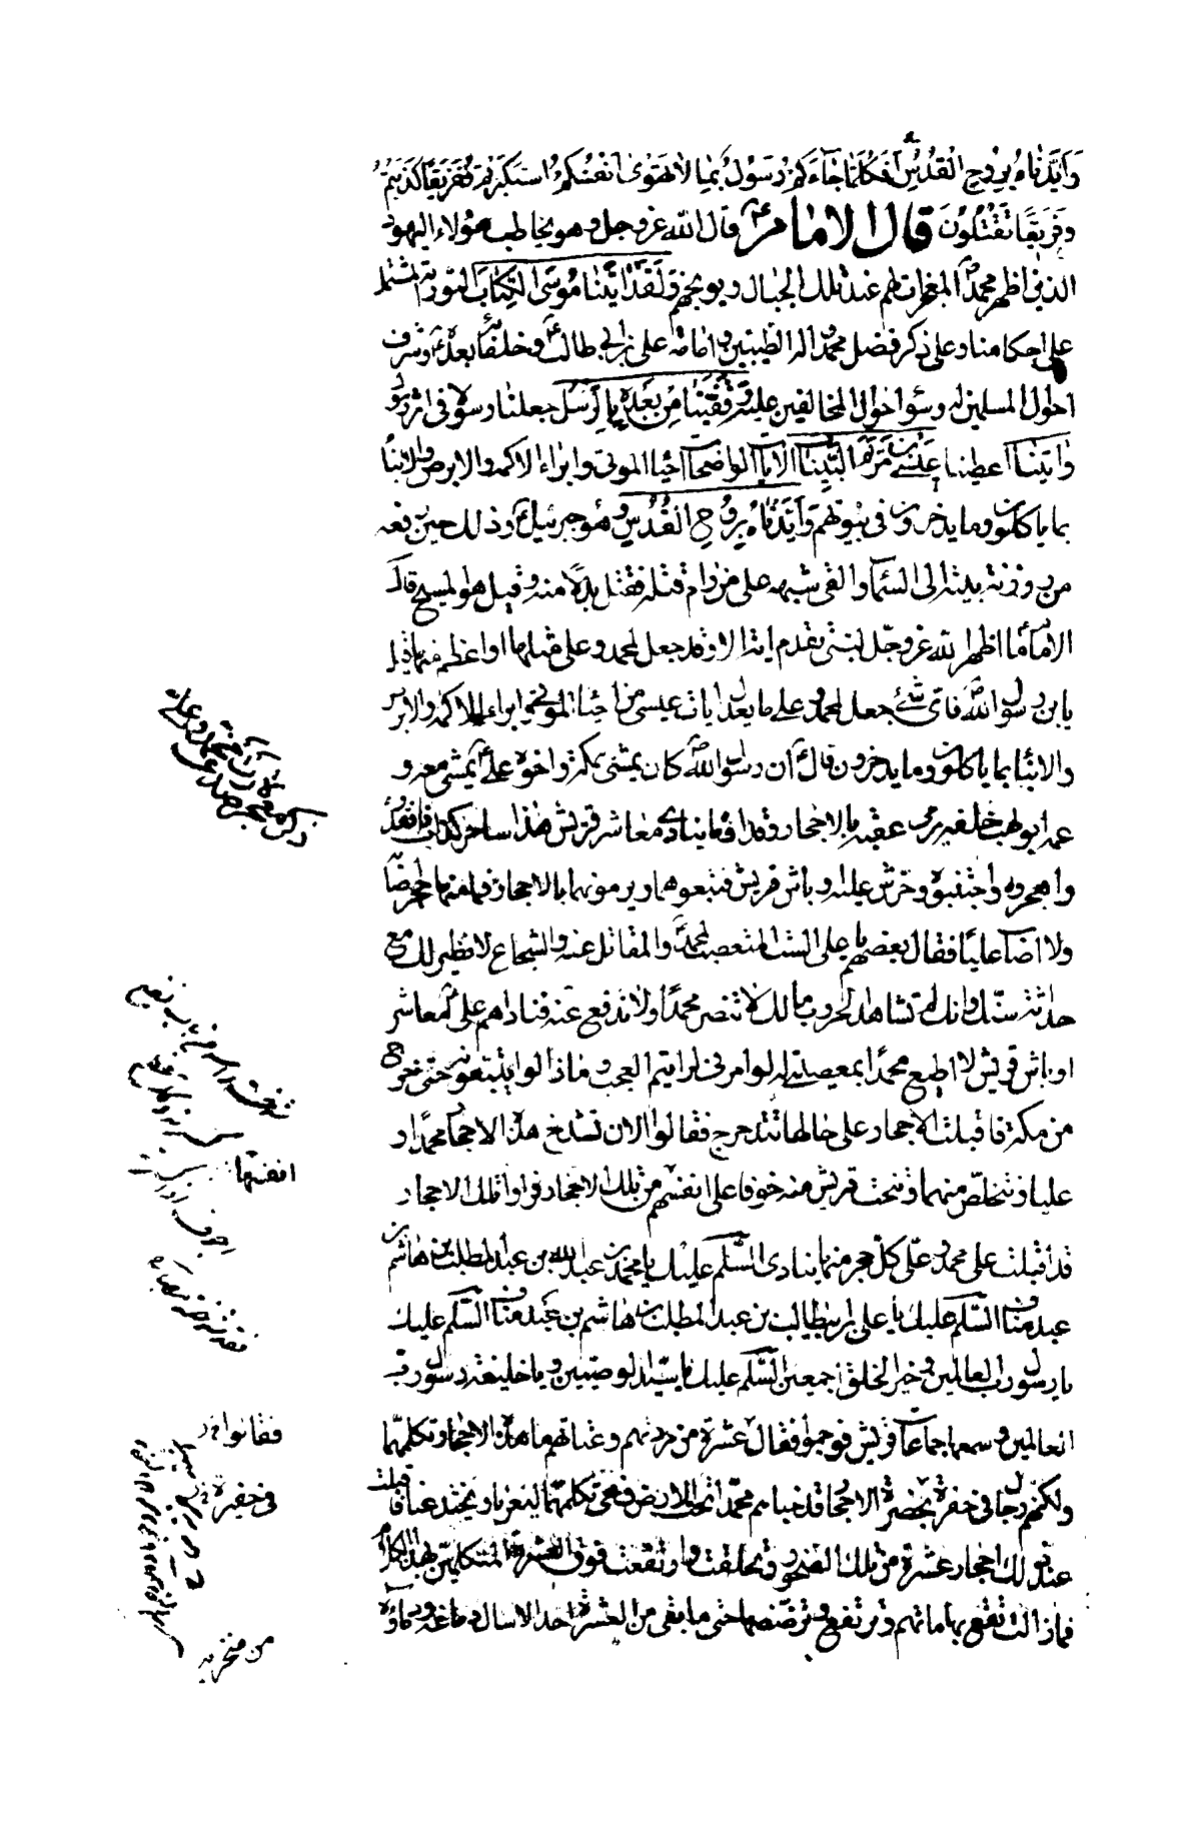 وَأَيَّدْنَاهُ بِرُوحِ الْقُدُسِ أَفَكُلَّمَا جَاءَكُمْ رَسُولٌ بِمَا لَا تَهْوَى أَنْفُسُكُمُ اسْتَكْبَرْتُمْ فَفَرِيقًا كَذَّبْتُمْ
وَفَرِيقًا تَقْتُلُونَ قال الامام ع قال الله عز وجل وهو يخاطب هؤلاء اليهود
الذين اظهر محمد ص المعجزات لهم عند تلك الجبال ويوبخهم وَلَقَدْ آتَيْنَا مُوسَى الْكِتَابَ التورية المشتمل
على احكامنا وعلى ذكر فضل محمد واله الطيبين وامامة على بن ابي طالب ع وخلفائه بعده وشرف
احوال المسلمين له وسوء احوال المخالفين عليه وَقَفَّيْنَا مِنْ بَعْدِهِ بِالرُّسُلِ جعلنا رسولا في اثر رسول
وَآتَيْنَا اعطينا عِيسَى بْنَ مَرْيَمَ الْبَيِّنَاتِ الايات الواضحات احياء الموتى وابراء الاكمه والابرص والانباء
بما ياكلون وما يدخرون في بيوتهم وَأَيَّدْنَاهُ بِرُوحِ الْقُدُسِ وهو جبرئيل ع وذلك حين رفعه
من روزنة بيته الى السماء والقى شبهه على من رام قتله فقتل بدلا منه وقيل هو المسيح قال
الامام ع ما اظهر الله عز وجل لنبى تقدم اية الا وقد جعل لمحمد وعلى مثلها او اعظم منها قيل
يابن رسول الله فاى شئ جعل لمحمد وعلى ما يعدل ايات عيسى من احياء الموتى وابراء الاكمه والابرص
والانباء بما ياكلون وما يدخرون قال ع ان رسول الله ص كان يمشى بمكة واخوه على ع يمشى معه و
عمه ابو لهب خلفه يرمى عقبه بالاحجار وقد ادماه ينادى معاشر قريش هذا ساحر كذاب فاقذفوه
واهجروه واجتنبوه وحرش عليه اوباش قريش فتبعوهما ويرمونهما بالاحجار فما منها حجر اصابه
ولا اصاب عليا فقال بعضهم يا على الست المتعصب لمحمد والمقاتل عنه والشجاع لا نظير لك مع
حداثة سنك وانك لم تشاهد الحروب ما لك لا تنصر محمدا ولا تدفع عنه فناداهم على ع معاشر
اوباش قريش لا اطيع محمدا بمعصيتى له لو امرنى لرايتم العجب وما زالوا يتبعونه حتى خرج
من مكة فاقبلت الاحجار على حالها تتدحرج فقالوا الان تشدخ هذه الاحجار محمدا و
عليا ونتخلص منهما وتنحت قريش عنه خوفا على انفسهم من تلك الاحجار فراوا تلك الاحجار
قد اقبلت على محمد وعلى كل حجر منها ينادى السلم عليك يا محمد بن عبد الله بن عبد المطلب بن هاشم بن
عبد مناف السلم عليك يا على بن ابيطالب بن عبد المطلب بن هاشم بن عبد مناف السلم عليك
يا رسول رب العالمين وخير الخلق اجمعين السلم عليك يا سيد الوصيين ويا خليفة رسول رب
العالمين وسمعها جماعات قريش فوجموا فقال عشرة من مردتهم وعتاتهم ما هذه الاحجار تكلمهما
ولكنهم رجال في حفرة بحضرة الاحجار قد خباهم محمد تحت الارض فهى تكلمهما ليغرنا ويختدعنا فاقبلت
عند ذلك احجار عشرة من تلك الصخور وتحلقت وارتفعت فوق العشرة المتكلمين بهذا الكلام
فما زالت تقع بهاماتهم وترتفع وترضضها حتى ما بقى من العشرة احد الا سال دماغه ودماؤه
ذكر معجزه صادره عن
افضتها
فقالوا
في حفيرة
من منخريه